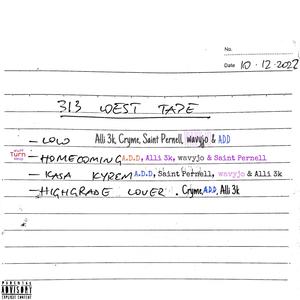 No.
Date 10-12-2022
313 WEST TAPE
- LOW Alli 3k, Cryme, Saint Pernell, wavyjo & ADD
Turn
- HOMECOMING A.D.D, Alli 3k, wavyjo & Saint Pernell
- KASA KYREM A.D.D, Saint Pernell, wavyjo & Alli 3k
- HIGHGRADE LOVER . Cryme, A.D.D, Alli 3k
PARENTAL
ADVISORY
EXPLICIT CONTENT